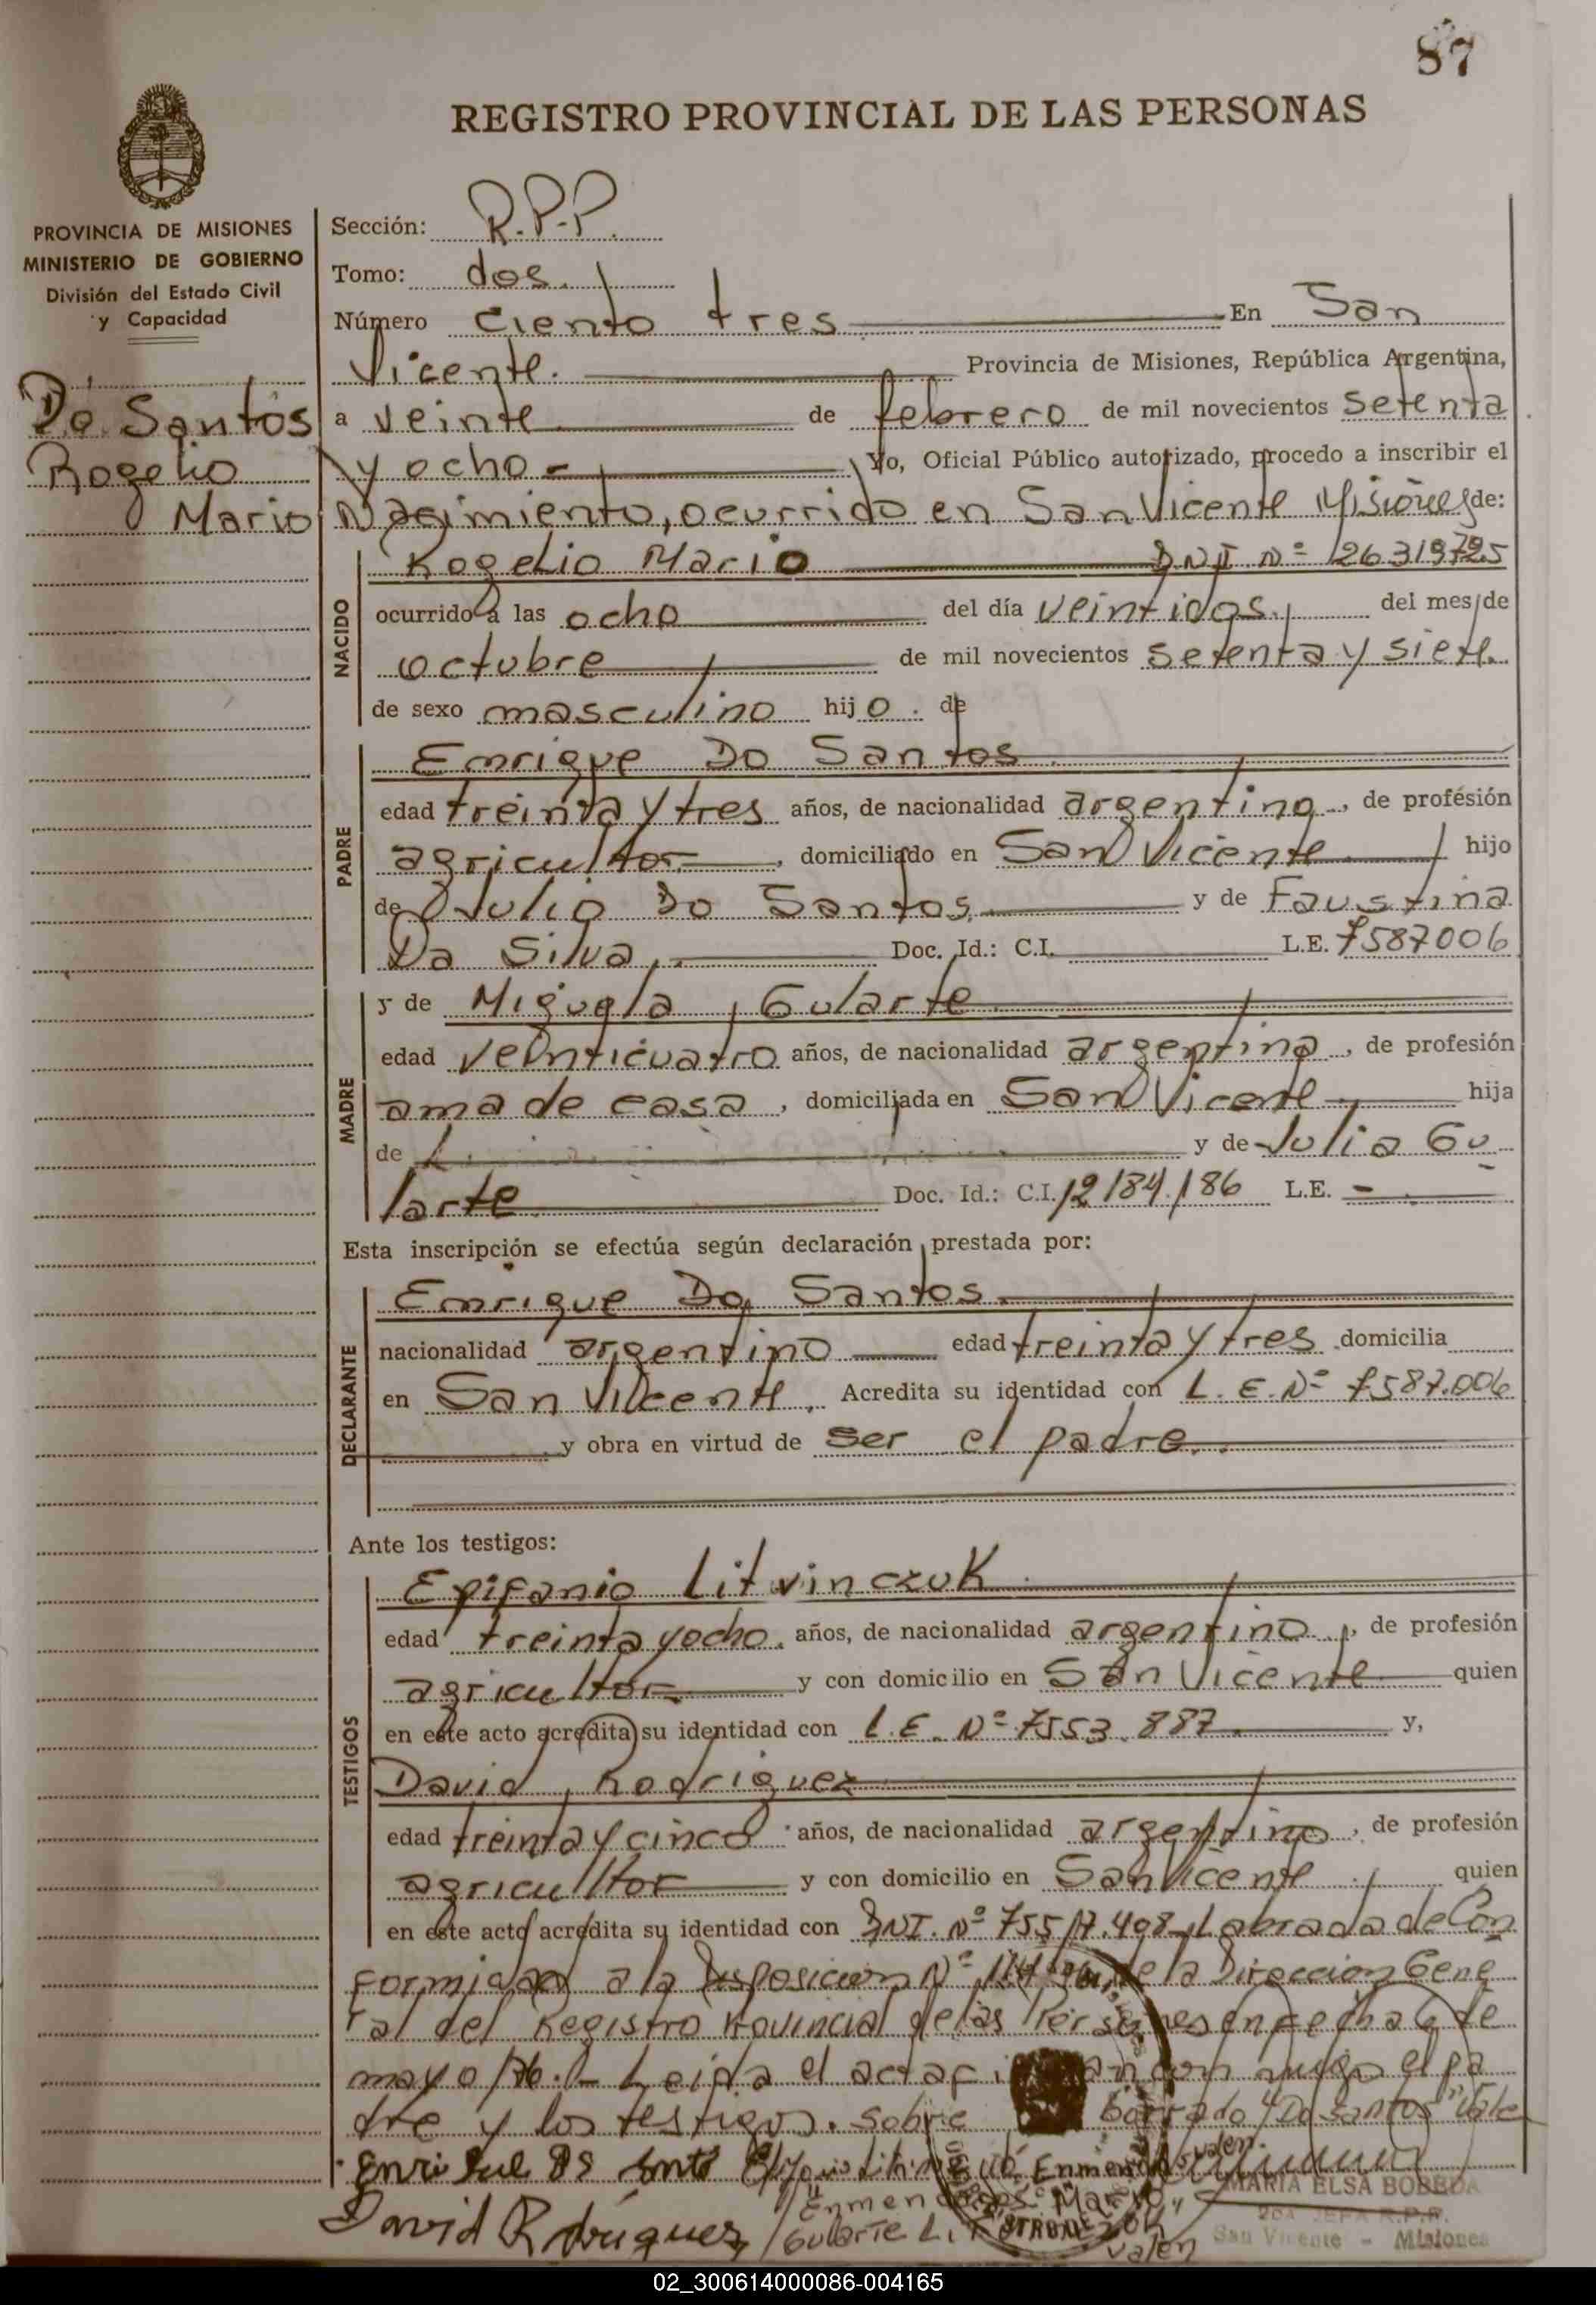 87
REGISTRO PROVINCIAL DE LAS PERSONAS
PROVINCIA DE MISIONES
MINISTERIO DE GOBIERNO
División del Estado Civil
y Capacidad
Do Santos
Rogelio
Mario
Sección: R.P.P.
Tomo: dos.
Número ciento tres En San
Vicente. Provincia de Misiones, República Argentina,
a veinte de febrero de mil novecientos setenta
y ocho Yo, Oficial Público autorizado, procedo a inscribir el
Nacimiento, ocurrido en San Vicente Misiones de:
NACIDO
Rogelio Mario DNI Nº 26319725
ocurrido a las ocho del día veintidos. del mes de
octubre de mil novecientos setenta y siete.
de sexo masculino hijo. de
PADRE
Enrique Do Santos
edad treinta y tres años, de nacionalidad argentino, de profesión
agricultor, domiciliado en San Vicente hijo
de Julio Do Santos y de Faustina
Da Silva. Doc. Id.: C.I. L.E. 7587006
MADRE
y de Miguela Gularte
edad veinticuatro años, de nacionalidad argentina, de profesión
ama de casa, domiciliada en San Vicente hija
de y de Julia Gu
larte Doc. Id.: C.I. 12184.186 L.E. -
Esta inscripción se efectúa según declaración prestada por:
DECLARANTE
Enrique Do Santos.
nacionalidad argentino edad treinta y tres domicilia
en San Vicente. Acredita su identidad con L.E. Nº 7587.006
y obra en virtud de ser el padre.
Ante los testigos:
TESTIGOS
Epifanio Litvinczuk
edad treinta y ocho. años, de nacionalidad argentino, de profesión
agricultor y con domicilio en San Vicente quien
en este acto acredita su identidad con L.E. Nº 7553.887 y,
David Rodriguez
edad treinta y cinco años, de nacionalidad argentino, de profesión
agricultor y con domicilio en San Vicente quien
en este acto acredita su identidad con DNI. Nº Labrada de Con
formidad a la Disposicion Nº de la Direccion Gene
ral del Registro Provincial de las Personas en fecha 6 de
mayo/76.- Leida el acta el pa
dre y los testigos. Sobre borrado "Do Santos" Vale
Enrique Do Santo Enmendado: valen.
Enmendados: Mario,
David Rodriguez Gularte valen
MARIA ELSA BOBEDA
JEFA R.P.P.
San Vicente - Misiones
02_300614000086-004165